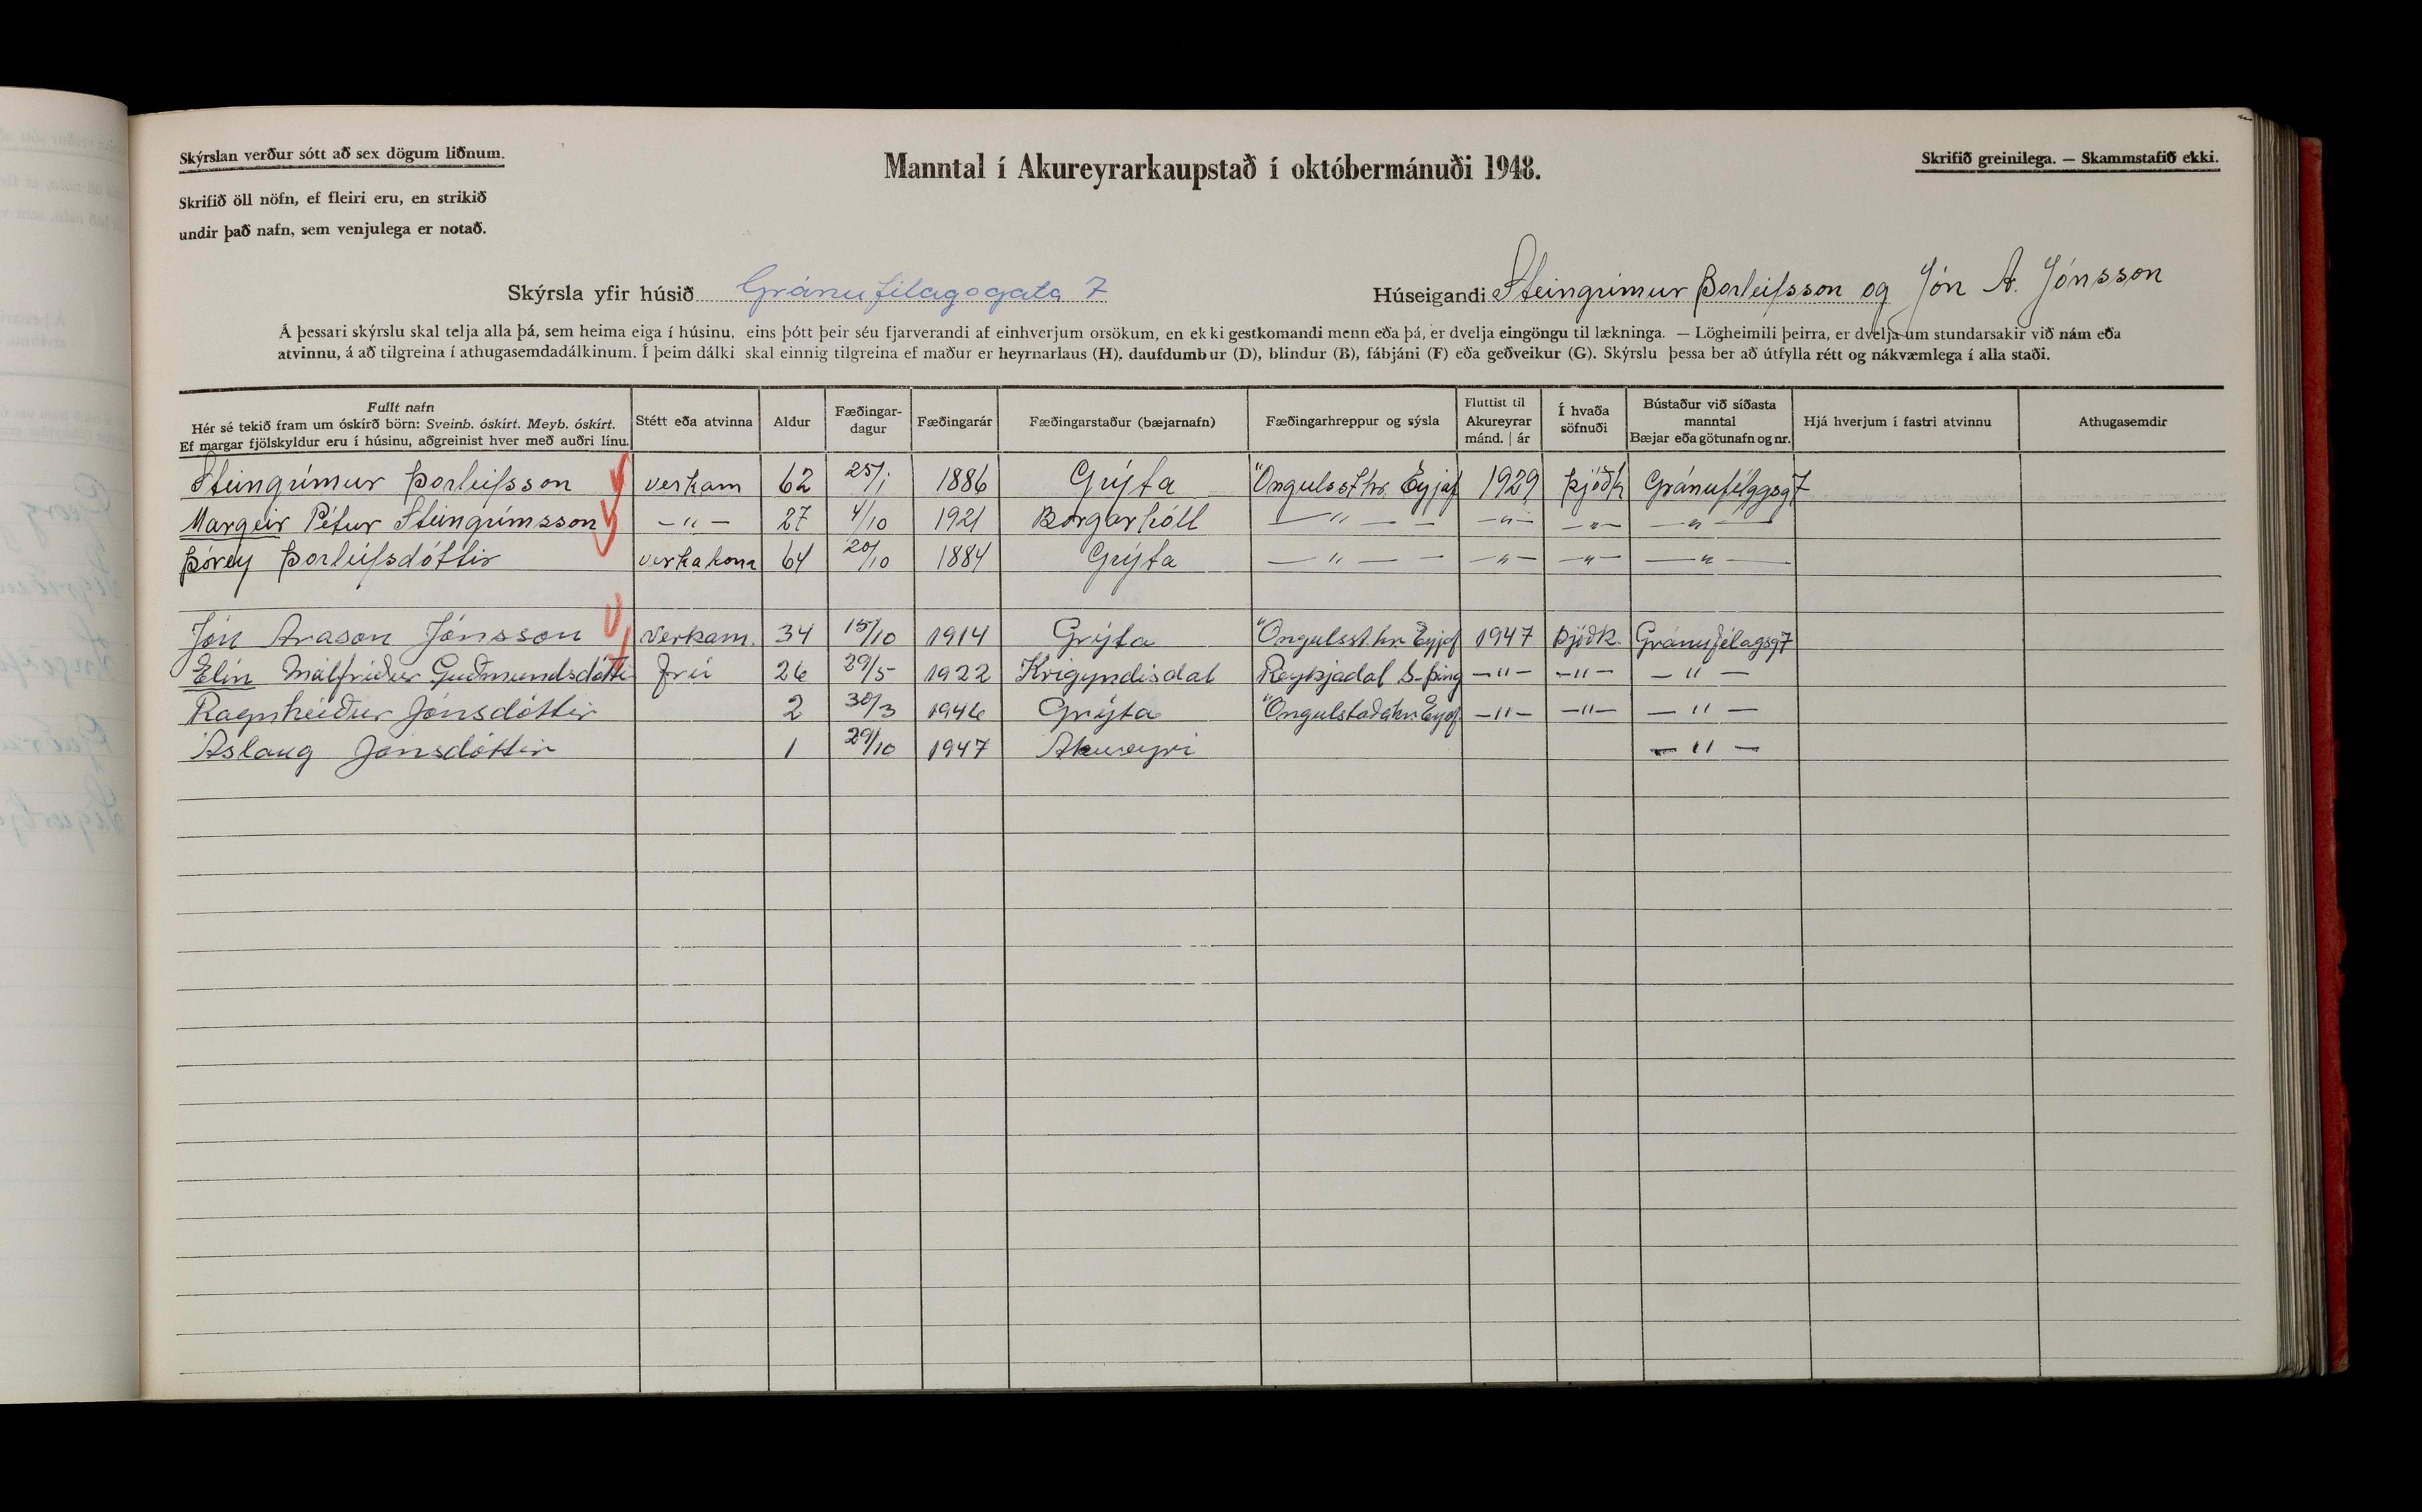 Skýrslan verður sótt að sex dögum liðnum.
Skrifið öll nöfn, ef fleiri eru, en strikið
undir það nafn, sem venjulega er notað.
Manntal í Akureyrarkaupstað í októbermánuði 1948.
Skrifið greinilega. — Skammstafið ekki.
Skýrsla yfir húsið Gránufélagsgata 7
Húseigandi Steingrímur Þorleifsson og Jón A. Jónsson
Á þessari skýrslu skal telja alla þá, sem heima eiga í húsinu, eins þótt þeir séu fjarverandi af einhverjum orsökum, en ekki gestkomandi menn eða þá, er dvelja eingöngu til lækninga. — Lögheimili þeirra, er dvelja um stundarsakir við nám eða
atvinnu, á að tilgreina í athugasemdadálkinum. Í þeim dálki skal einnig tilgreina ef maður er heyrnarlaus (H), daufdumbur (D), blindur (B), fábjáni (F) eða geðveikur (G). Skýrslu þessa ber að útfylla rétt og nákvæmlega í alla staði.
Fullt nafn
Hér sé tekið fram um óskírð börn: Sveinb. óskírt. Meyb. óskírt.
Ef margar fjölskyldur eru í húsinu, aðgreinist hver með auðri línu.
Stétt eða atvinna
Aldur
Fæðingar-
dagur
Fæðingarár
Fæðingarstaður (bæjarnafn)
Fæðingarhreppur og sýsla
Fluttist til
Akureyrar
mánd. | ár
Í hvaða
söfnuði
Bústaður við síðasta
manntal
Bæjar eða götunafn og nr.
Hjá hverjum í fastri atvinnu
Athugasemdir
Steingrímur Þorleifsson verkam 62 25/1 1886 Grýta Öngulsst.hr. Eyjaf 1929 Þjóðk Gránufélagsg 7
Margeir Pétur Steingrímsson —"— 27 4/10 1921 Borgarhóll —"— — —"— —"— —"—
Þórey Þorleifsdóttir verkakona 64 20/10 1884 Grýta —"— — —"— —"— —"—
Jón Arason Jónsson Verkam. 34 15/10 1914 Grýta Öngulsst.hr. Eyjaf 1947 Þjóðk. Gránufélagsg 7
Elín Málfríður Guðmundsdótti frú 26 29/5 1922 Krigyndisdal Reykjadal S-Þing —"— —"— —"—
Ragnheiður Jónsdóttir 2 30/3 1946 Grýta Öngulstaðahr. Eyjaf —"— —"— —"—
Áslaug Jónsdóttir 1 29/10 1947 Akureyri —"—